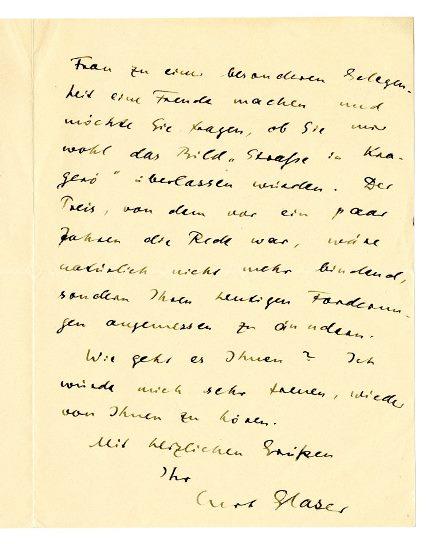 Frau zu einer besonderen Gelegen-
heit eine Freude machen und
möchte Sie fragen, ob Sie mir
wohl das Bild „Straße in Kra-
gerö" überlassen würden. Der
Preis, von dem vor ein paar
Jahren die Rede war, wäre
natürlich nicht mehr bindend,
sondern Ihren heutigen Forderun-
gen angemessen zu ändern.
Wie geht es Ihnen? Ich
würde mich sehr freuen, wieder
von Ihnen zu hören.
Mit herzlichen Grüßen
Ihr
Curt Glaser